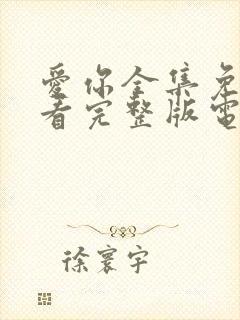 愛你全集免
看完整版電
徐寰宇